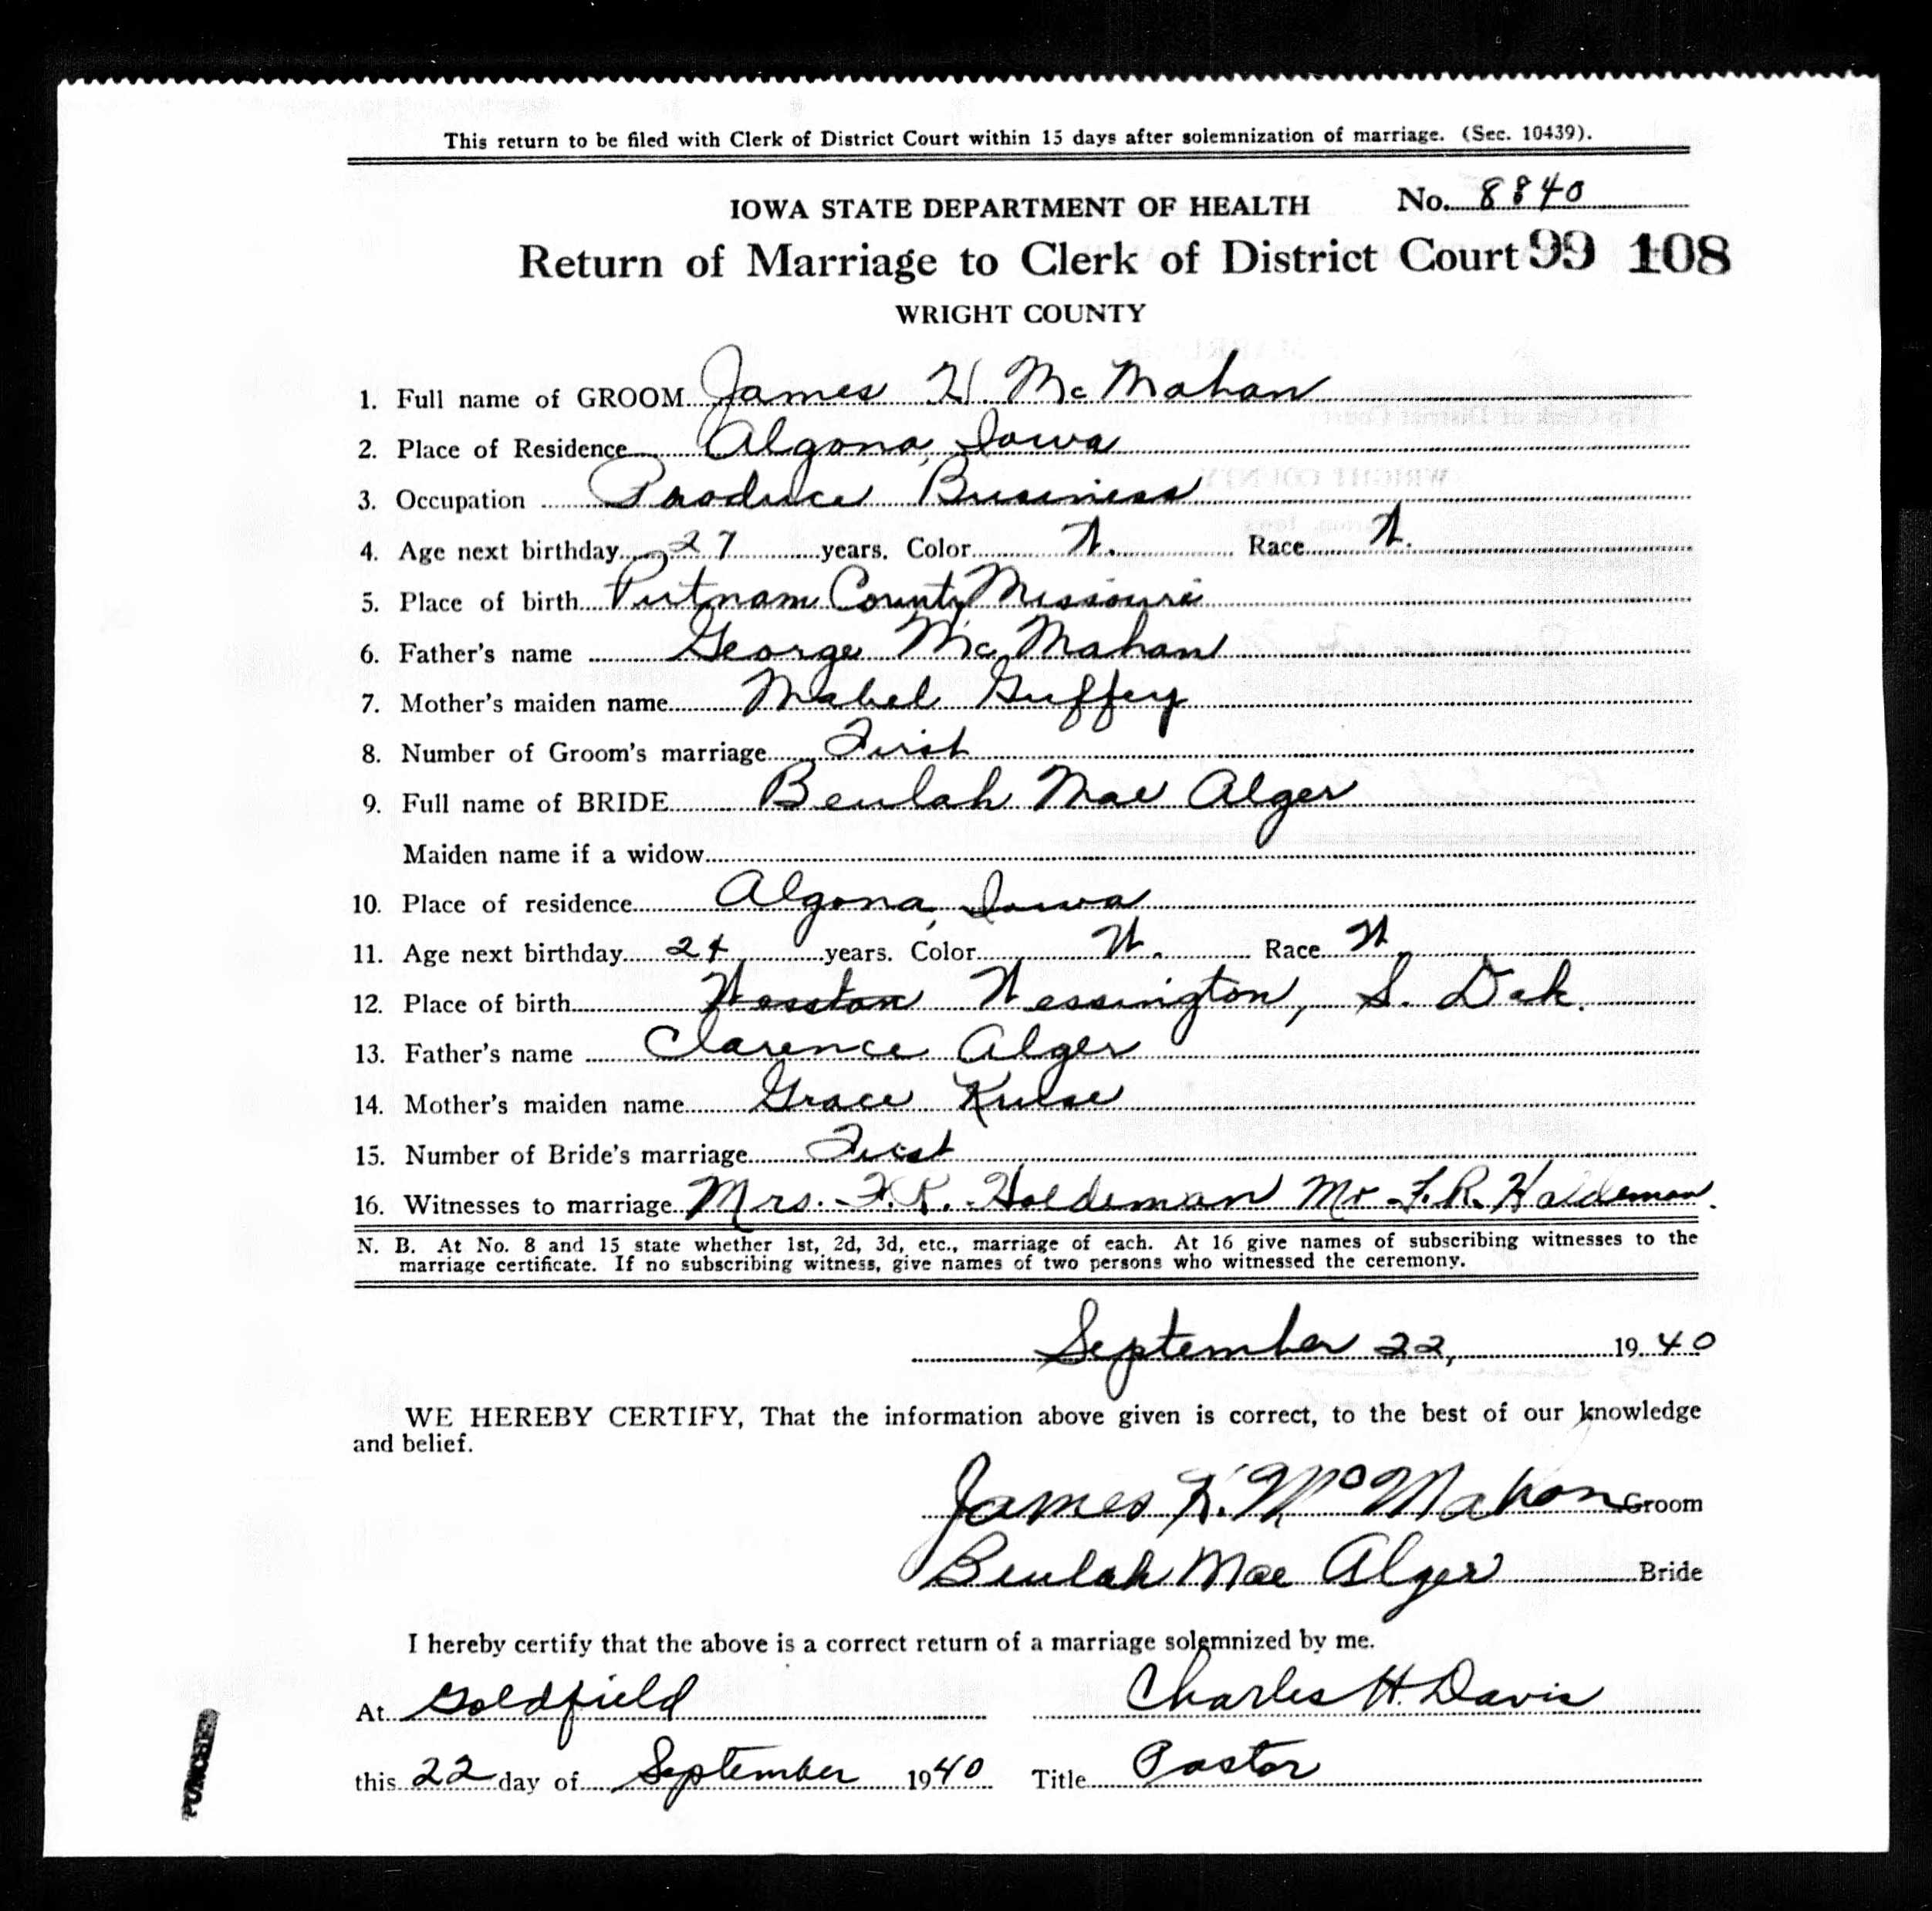 This return to be filed with Clerk of District Court within 15 days after solemnization of marriage. (Sec. 10439).
IOWA STATE DEPARTMENT OF HEALTH No. 8840
Return of Marriage to Clerk of District Court 99 108
WRIGHT COUNTY
1. Full name of GROOM James H. McMahan
2. Place of Residence Algona, Iowa
3. Occupation Produce Business
4. Age next birthday 27 years. Color W. Race W.
5. Place of birth Putnam County Missouri
6. Father's name George McMahan
7. Mother's maiden name Mabel Guffey
8. Number of Groom's marriage First
9. Full name of BRIDE Beulah Mae Alger
Maiden name if a widow
10. Place of residence Algona, Iowa
11. Age next birthday 24 years. Color W. Race W.
12. Place of birth Wessington, S. Dak.
13. Father's name Clarence Alger
14. Mother's maiden name Grace Kulse
15. Number of Bride's marriage First
16. Witnesses to marriage Mrs. F.R. Holdeman Mr. F.R. Haldeman.
N. B. At No. 8 and 15 state whether 1st, 2d, 3d, etc., marriage of each. At 16 give names of subscribing witnesses to the
marriage certificate. If no subscribing witness, give names of two persons who witnessed the ceremony.
September 22, 1940
WE HEREBY CERTIFY, That the information above given is correct, to the best of our knowledge
and belief.
James H. McMahon Groom
Beulah Mae Alger Bride
I hereby certify that the above is a correct return of a marriage solemnized by me.
At Goldfield Charles H. Davis
this 22 day of September 1940 Title Pastor
PUNCHED